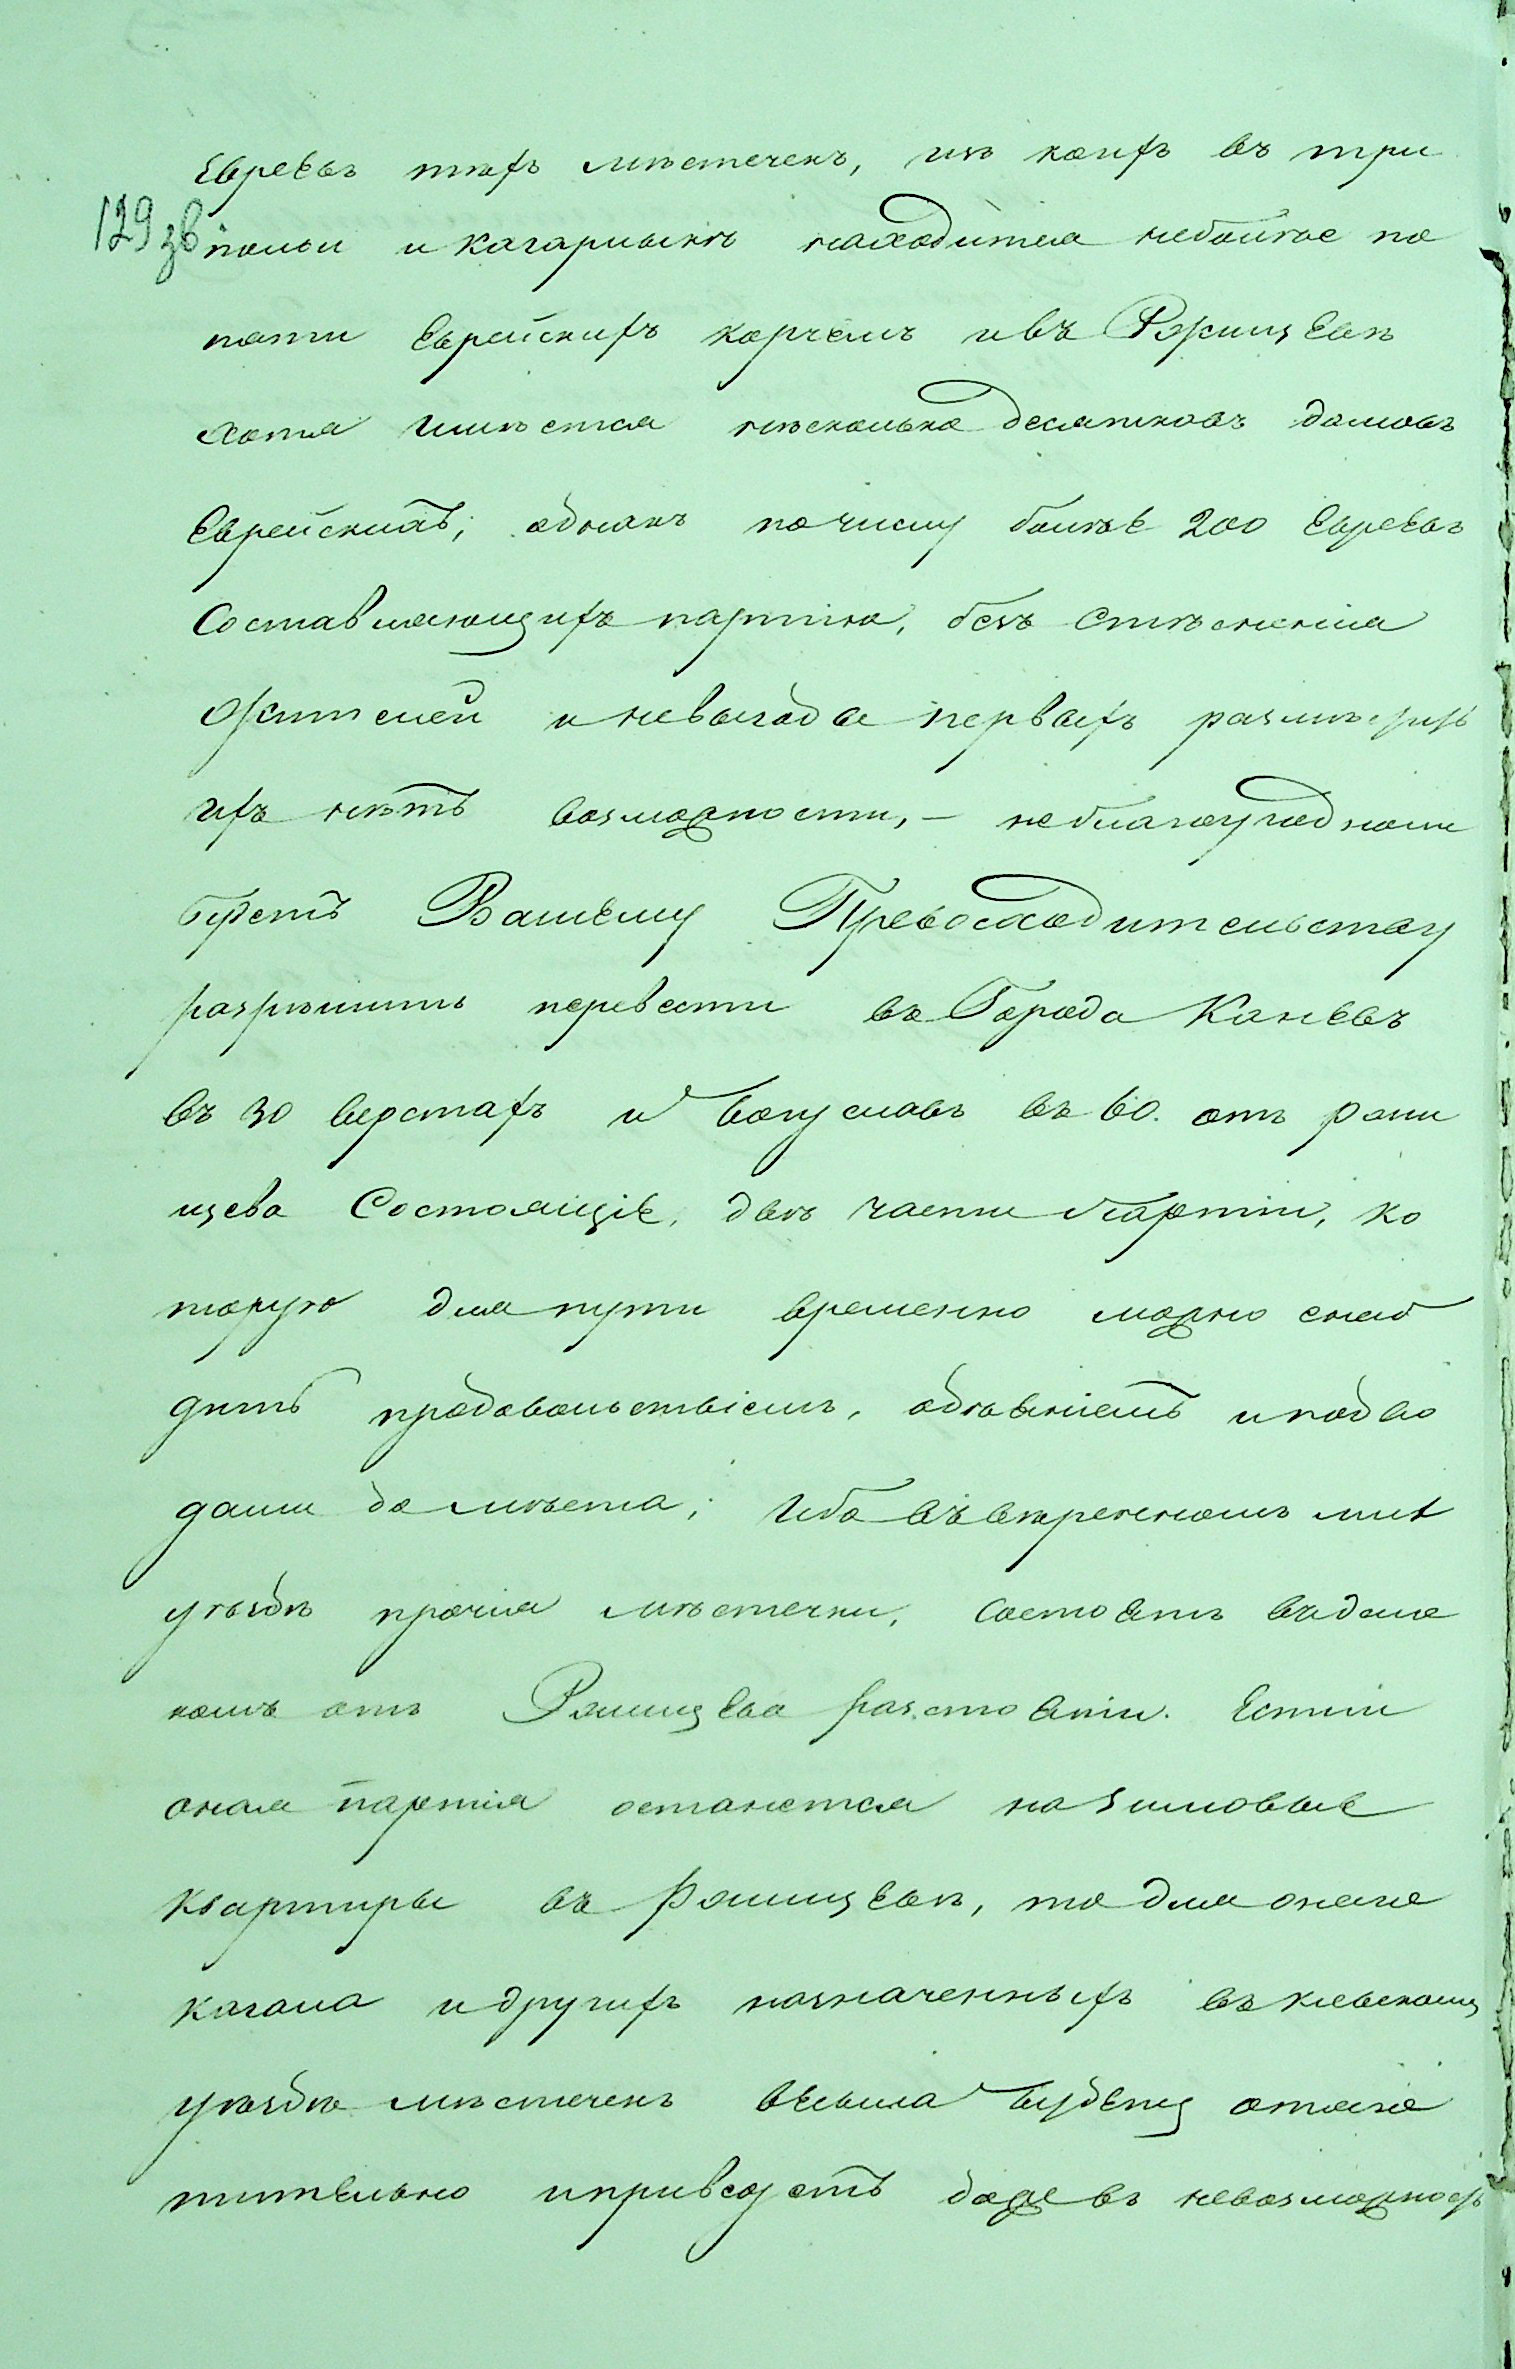 Евреевъ тѣхъ мѣстечекъ, изъ коихъ въ три
129 зв польи и кагарлыкѣ находится неболѣе по
пяти Еврейскихъ корчемъ ивъ Ржищевѣ
хотя имѣется нѣсколько десятковъ домовъ
Еврейскихъ, однакъ почислу болѣе 200 Евреевъ
Составляющихъ партію, безъ стѣсненія
жителей и невыгоды первыхъ размѣстить
ихъ нѣтъ возможности, – неблагоугодноли
будетъ Вашему Превосходительству
разрѣшить перевести въ Города Каневъ
въ 30 верстахъ и Богуславъ въ 60. отъ Ржи
щева Состоящіе, двѣ части партіи, ко
торую для пути временно можно снаб
дить продовольствіемъ, одѣяніемъ и подво
дами до мѣста; Ибо въ ввѣренномъ мнѣ
уѣздѣ прочія мѣстечки, состоятъ въдале
комъ отъ Ржищева разстояніи. Естли
оная партія останется назимовые
квартиры въ Ржищевѣ, то для онаго
кагала и другихъ назначенныхъ въ кіевскомъ
уѣздѣ мѣстечекъ весьма будетъ отяго
тительно иприведетъ даже въ невозможность